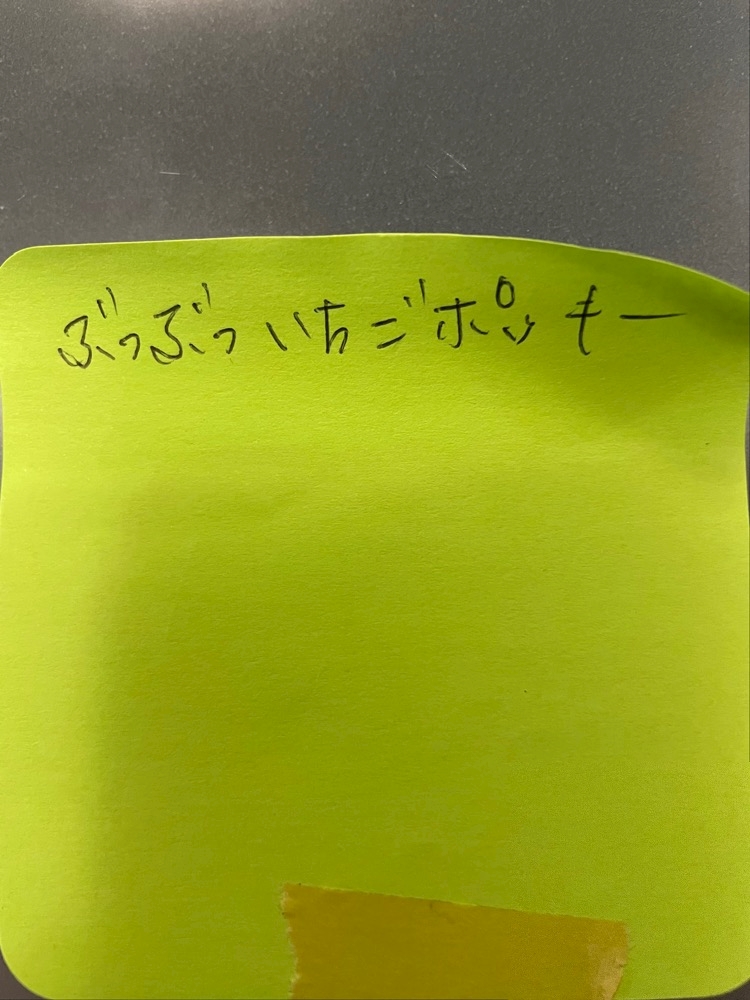 ぶつぶついちごポッキー